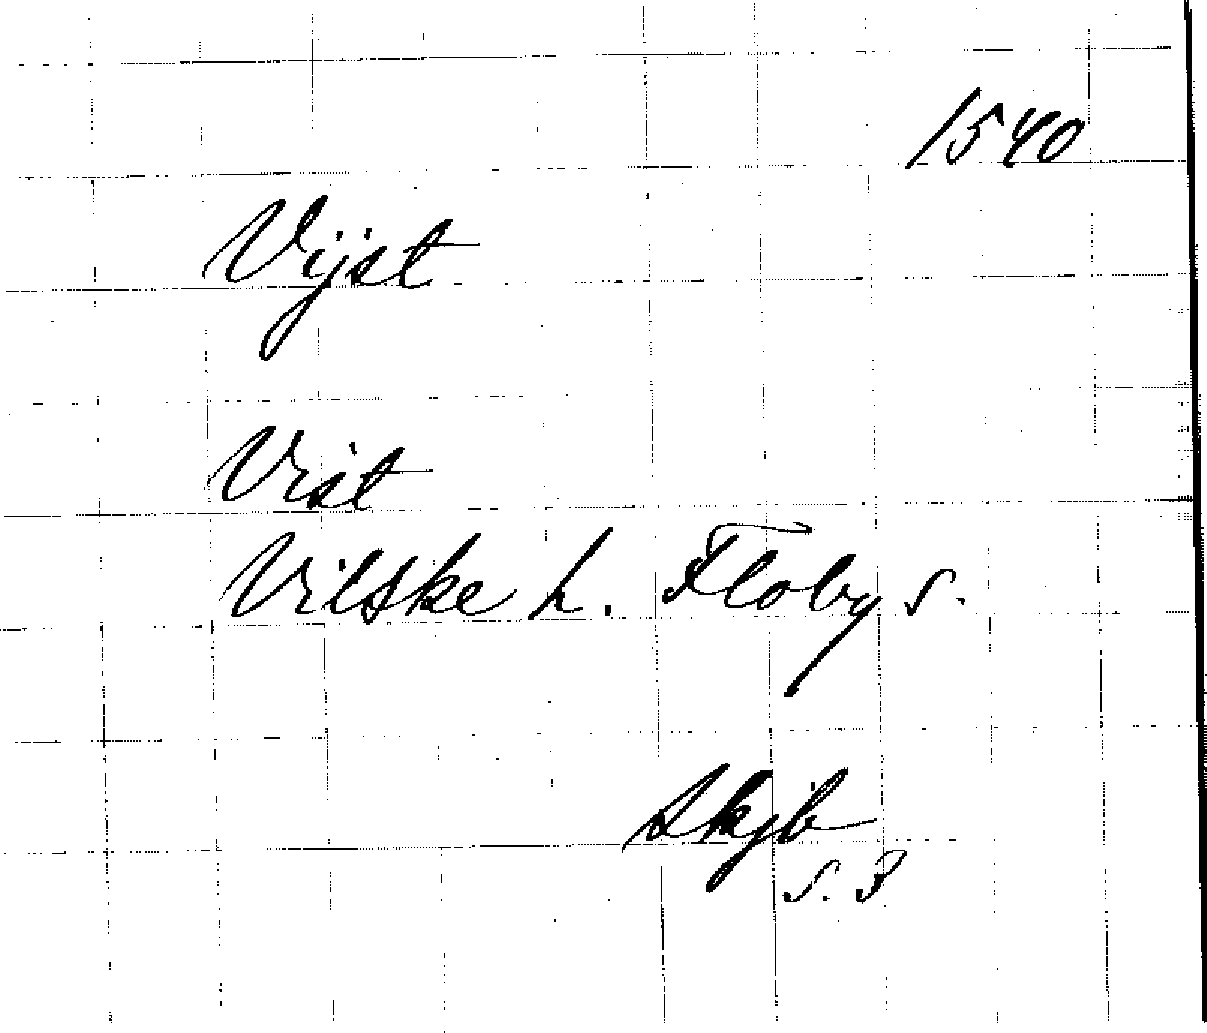 1540
Vijst
Vist
Vilske h. Floby s.
Skjb
s. 3